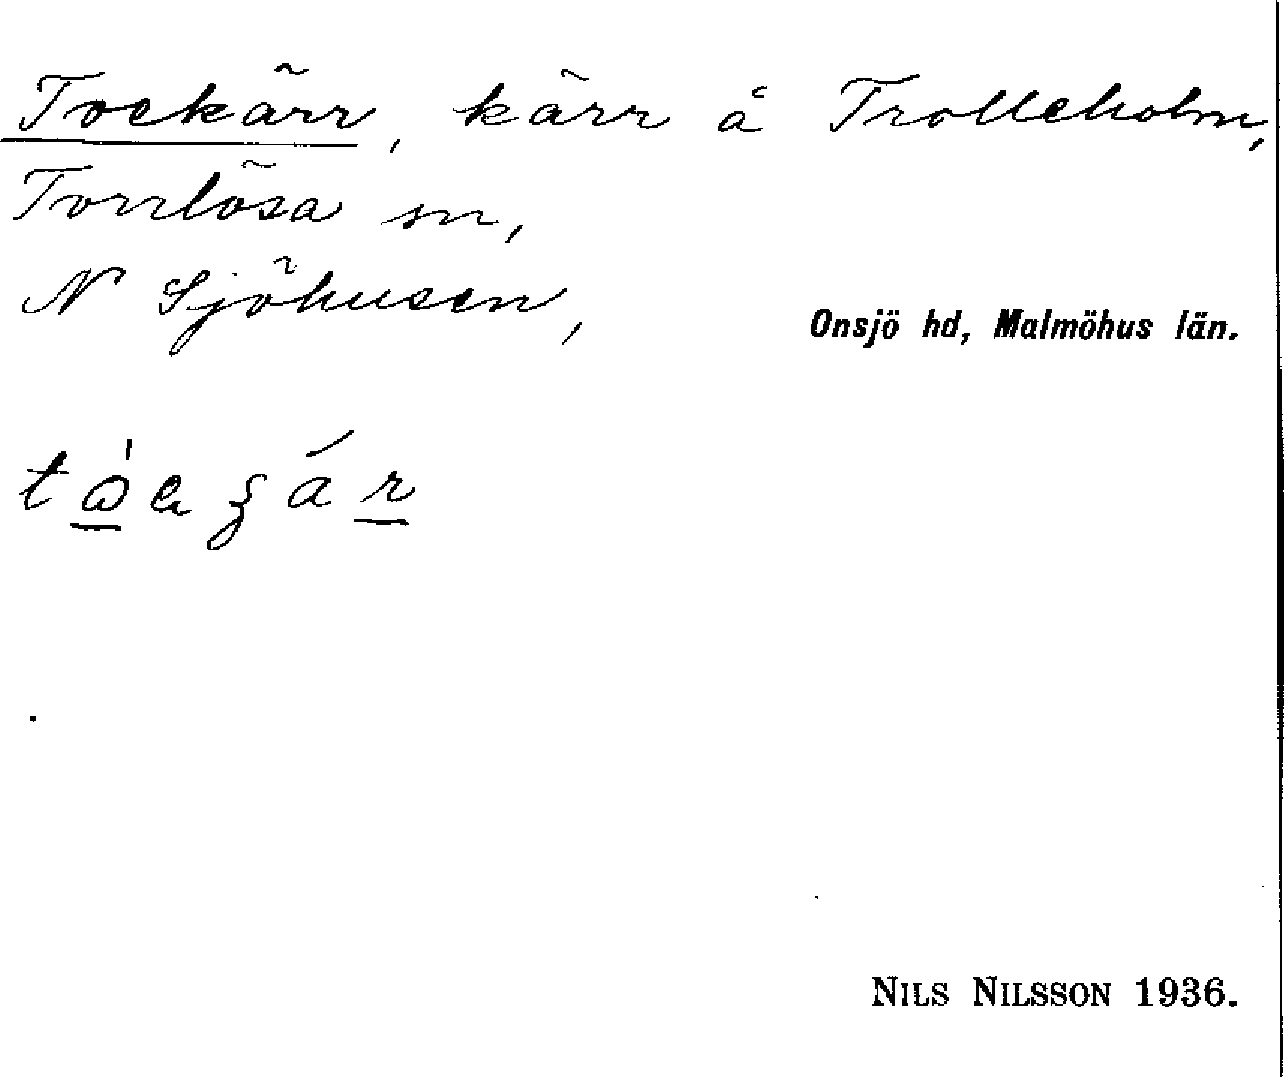 Tockärr, kärr å Trolleholm,
Torrlösa sn,
N Sjöhusen,
Onsjö hd, Malmöhus län.
NILS NILSSON 1936.